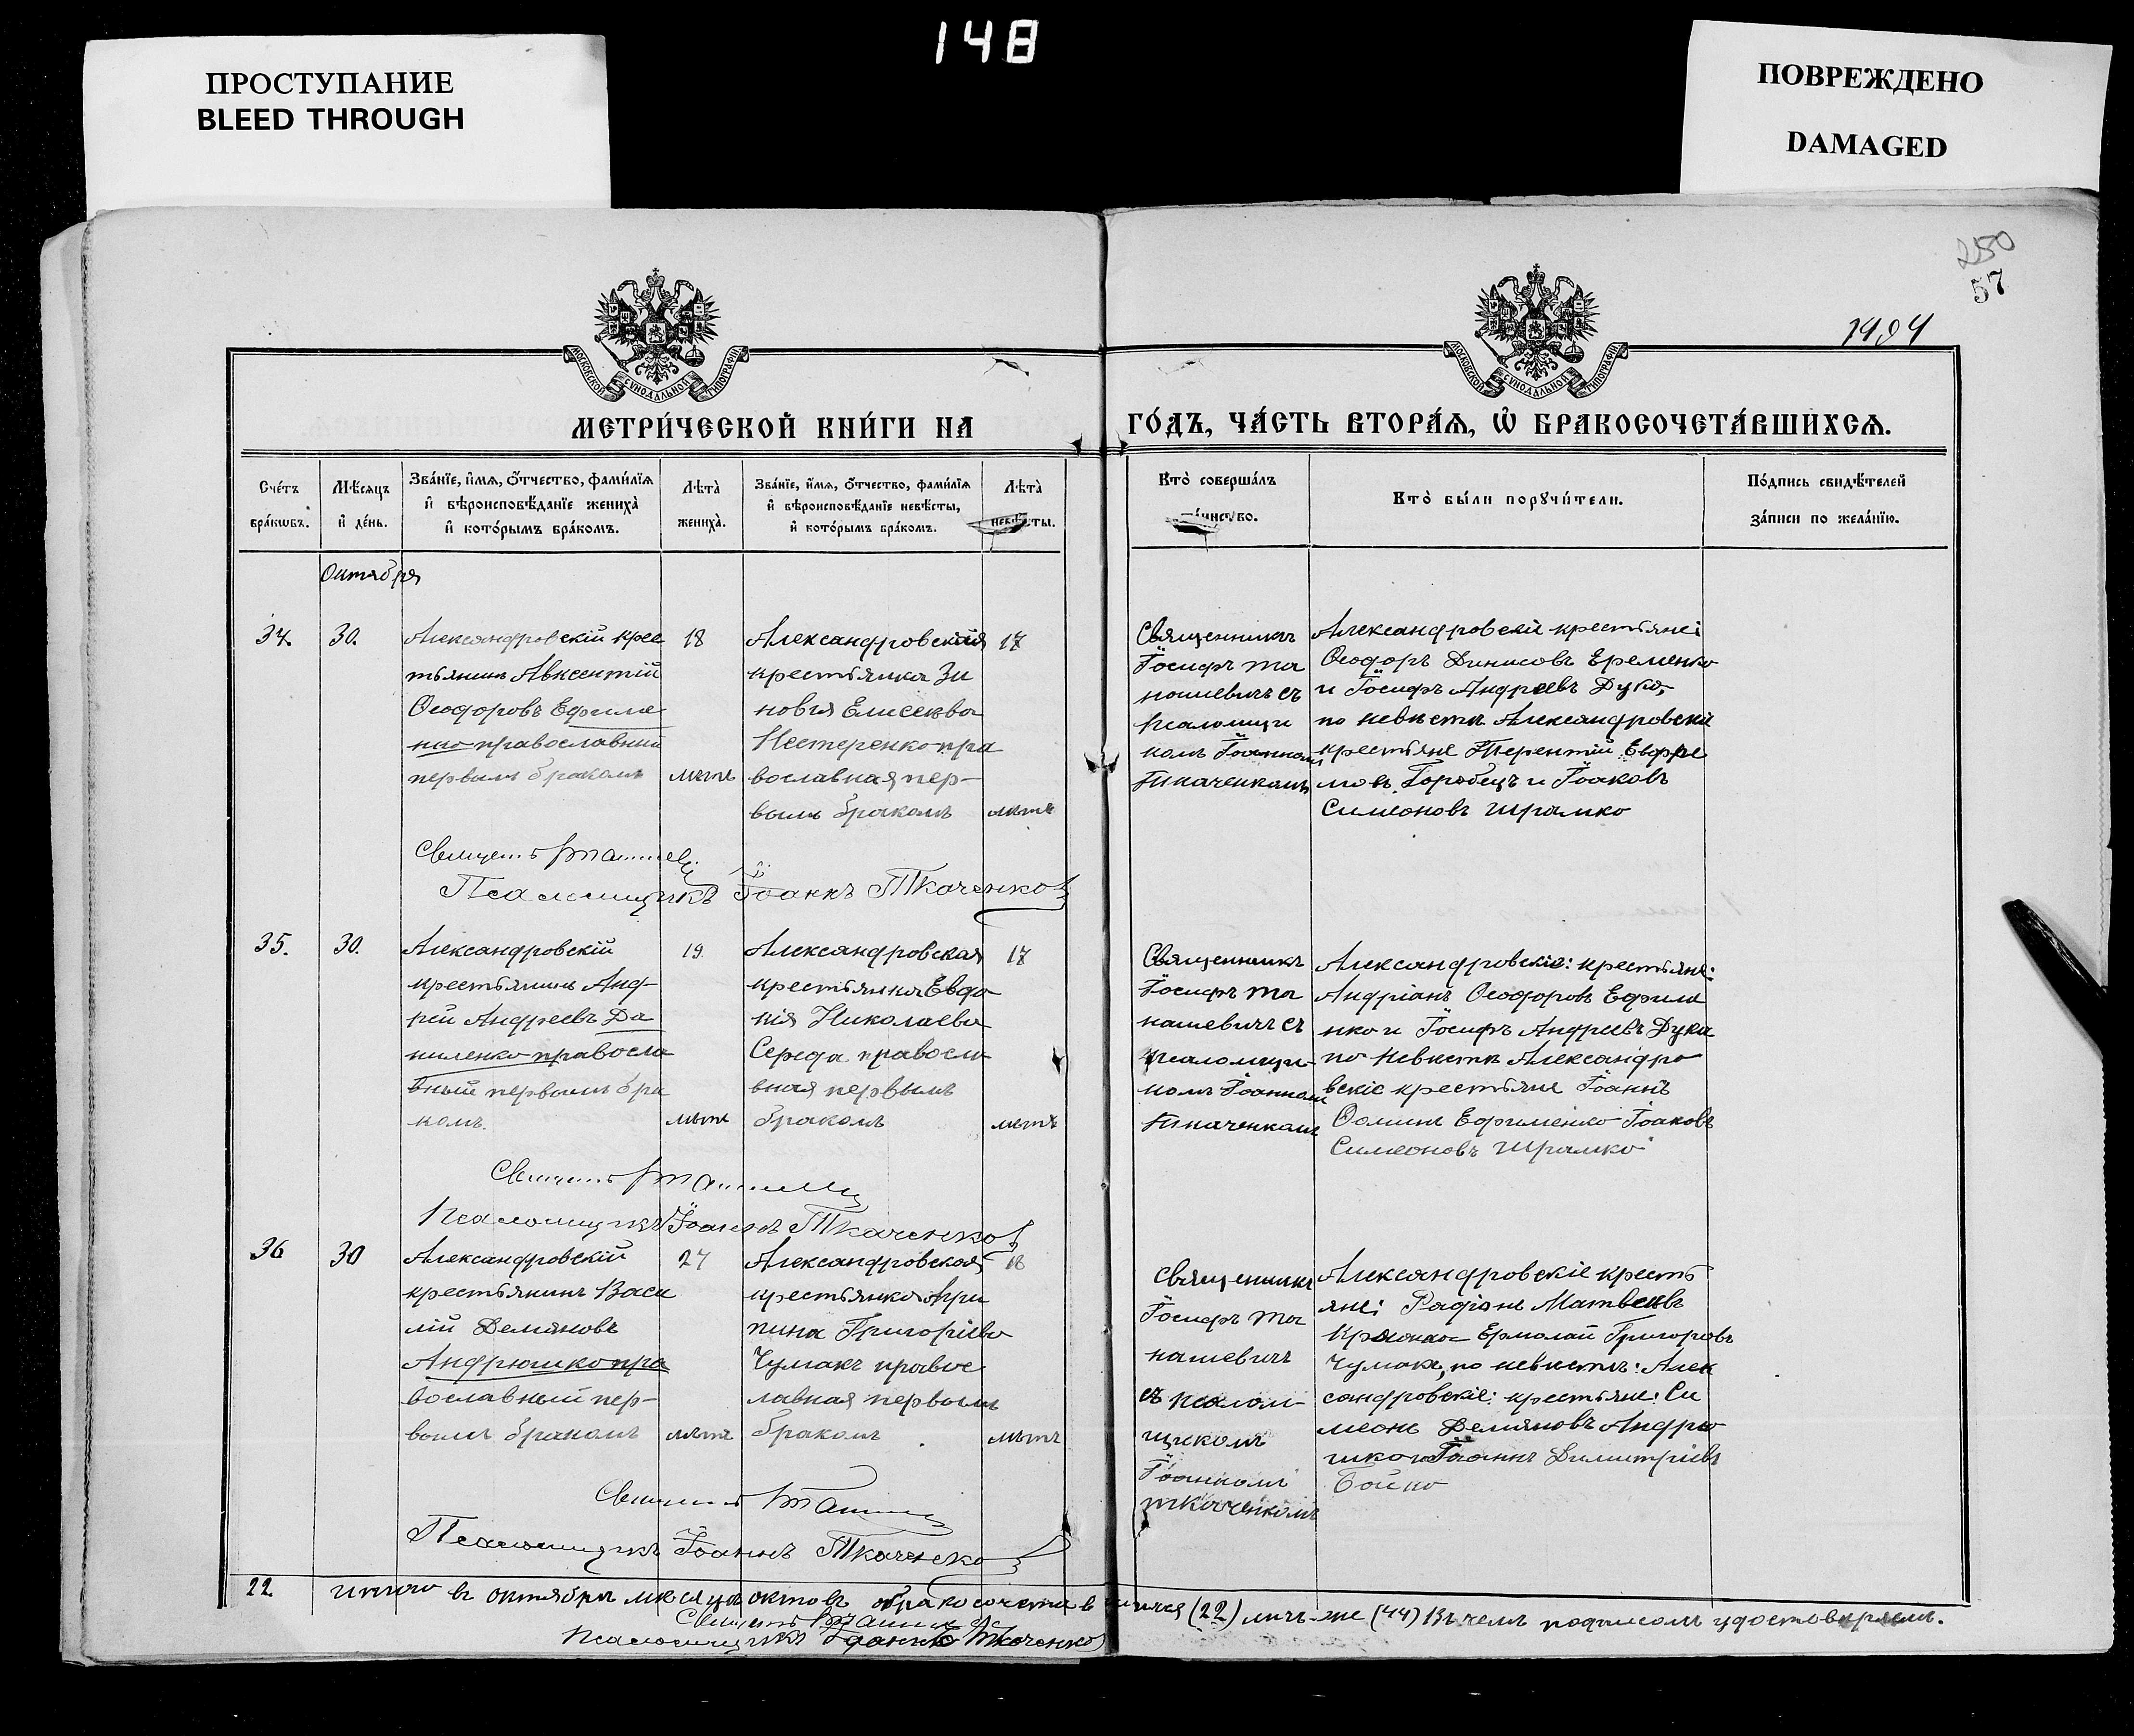 148
ПРОСТУПАНИЕ
BLEED THROUGH
ПОВРЕЖДЕНО
DAMAGED
250
57
1904
МОСКОВСКОЙ СѴНОДАЛЬНОЙ ТИПОГРАФІИ
МОСКОВСКОЙ СѴНОДАЛЬНОЙ ТИПОГРАФІИ
МЕТРИ́ЧЕСКОЙ КНИ́ГИ НА ГО́ДЪ, ЧА́СТЬ ВТОРА́Ѧ, Ѽ БРАКОСОЧЕТА́ВШИХСѦ.
Сче́тъ
бра́кѡвъ.
Мѣ́сѧцъ
и҆ де́нь.
Зва́нїе, и҆́мѧ, ѻ҆́тчество, фами́лїѧ
и҆ вѣроисповѣ́данїе жениха̀
и҆ кото́рымъ бра́комъ.
Лѣта̀
жениха̀.
Зва́нїе, и҆́мѧ, ѻ҆́тчество, фами́лїѧ
и҆ вѣроисповѣ́данїе невѣ́сты,
и҆ кото́рымъ бра́комъ.
Лѣта̀
невѣ́сты.
Кто̀ соверша́лъ
та́инство.
Кто̀ бы́ли порꙋчи́тели.
По́дпись свидѣ́телей
за́писи по жела́нїю.
Октября
34.
30.
Александровскій крес
тьянинъ Авксентій
Ѳеодоровъ Ефиме
нко православный
первымъ бракомъ
18
лѣтъ
Александровская
крестьянка Зи
новія Елисеева
Нестеренко пра
вославная пер-
вымъ бракомъ
17
лѣтъ
Священникъ
Іосифъ Та
нашевичъ съ
псаломщи
комъ Іоанномъ
Ткаченкомъ
Александровскіе крестьяне:
Ѳеодоръ Динисовъ Еременко
и Іосифъ Андреевъ Дука,
по невѣстѣ Александровскіе
крестьяне Терентій Евфре
мовъ Горобецъ и Іоаковъ
Симеоновъ Шрамко
Псаломщикъ Іоаннъ Ткаченко
35.
30.
Александровскій
крестьянинъ Анд-
рей Андреевъ Да
ниленко правосла
вный первымъ бра
комъ.
19.
лѣтъ
Александровская
крестьянка Евдо
кія Николаева
Середа правосла
вная первымъ
бракомъ
17
лѣтъ
Священникъ
Іосифъ Та
нашевичъ съ
псаломщи-
комъ Іоанномъ
Ткаченкомъ
Александровскіе: крестьяне:
Андріанъ Ѳеодоровъ Ефиме
нко и Іосифъ Андреевъ Дука
по невѣстѣ Александро
вскіе крестьяне Іоаннъ
Ѳоминъ Ефименко Іоаковъ
Симеоновъ Шрамко
Псаломщикъ Іоаннъ Ткаченко
36
30
Александровскій
крестьянинъ Васи
лій Демяновъ
Андрюшко пра
вославный пер-
вымъ бракомъ
27
лѣтъ
Александровская
крестьянка Агри
пина Григоріева
Чумакъ правос
лавная первымъ
бракомъ
18
лѣтъ
Священникъ
Іосифъ Та
нашевичъ
съ псалом-
щикомъ
Іоанномъ
Ткаченкомъ
Александровскіе кресть
яне: Радіонъ Матвеевъ
Ермолай Григоровъ
Чумакъ, по невѣстѣ: Алек
сандровскіе: крестьяне: Си
меонъ Демяновъ Андрю
шко и Іоаннъ Димитріевъ
Бойко
Псаломщикъ Іоаннъ Ткаченко
22 Итого въ октябрѣ мѣсяцѣ бракосочетавшихся (22) лицъ-же (44) Въ чемъ подписомъ удостоверяемъ.
Псаломщикъ Іоаннъ Ткаченко